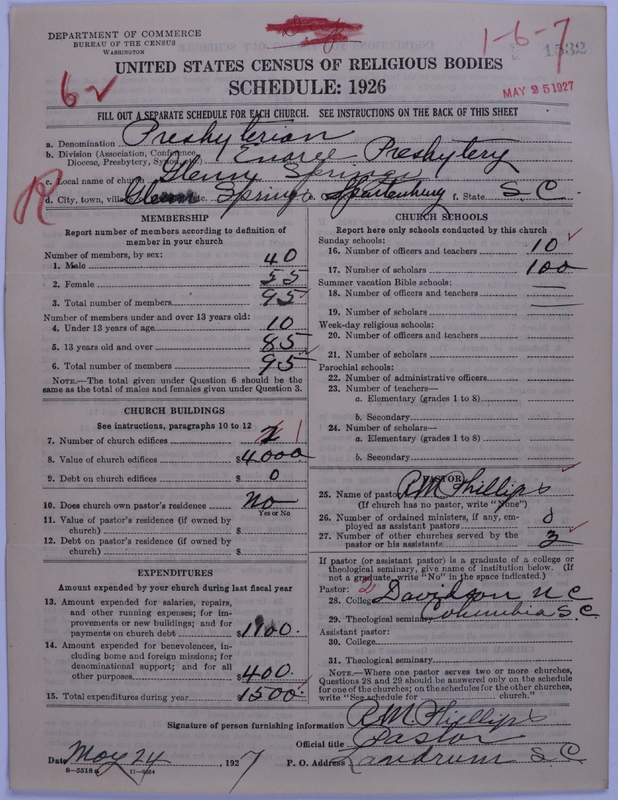 DEPARTMENT OF COMMERCE
BUREAU OF THE CENSUS
WASHINGTON
1-6-7
1532
6
MAY 25 1927
UNITED STATES CENSUS OF RELIGIOUS BODIES
SCHEDULE: 1926
FILL OUT A SEPARATE SCHEDULE FOR EACH CHURCH. SEE INSTRUCTIONS ON THE BACK OF THIS SHEET
a. Denomination Presbyterian
b. Division (Association, Conference, Diocese, Presbytery, Synod, etc.) Enoree Presbytery
c. Local name of church Glenn Springs
d. City, town, village, etc. Glenn Springs Spartanburg f. State S. C.
R
MEMBERSHIP
Report number of members according to definition of
member in your church
Number of members, by sex:
1. Male 40
2. Female 55
3. Total number of members 95
Number of members under and over 13 years old:
4. Under 13 years of age 10
5. 13 years old and over 85
6. Total number of members 95
NOTE.—The total given under Question 6 should be the
same as the total of males and females given under Question 3.
CHURCH BUILDINGS
See instructions, paragraphs 10 to 12
7. Number of church edifices 2 1
8. Value of church edifices $4000
9. Debt on church edifices $ 0
10. Does church own pastor's residence No
Yes or No
11. Value of pastor's residence (if owned by
church) $
12. Debt on pastor's residence (if owned by
church) $
EXPENDITURES
Amount expended by your church during last fiscal year
13. Amount expended for salaries, repairs,
and other running expenses; for im-
provements or new buildings; and for
payments on church debt $1100.
14. Amount expended for benevolences, in-
cluding home and foreign missions; for
denominational support; and for all
other purposes $400.
15. Total expenditures during year $1500.
CHURCH SCHOOLS
Report here only schools conducted by this church
Sunday schools:
16. Number of officers and teachers 10
17. Number of scholars 100
Summer vacation Bible schools:
18. Number of officers and teachers
19. Number of scholars
Week-day religious schools:
20. Number of officers and teachers
21. Number of scholars
Parochial schools:
22. Number of administrative officers
23. Number of teachers—
a. Elementary (grades 1 to 8)
b. Secondary
24. Number of scholars—
a. Elementary (grades 1 to 8)
b. Secondary
PASTOR
25. Name of pastor R M Phillips
(If church has no pastor, write "None")
26. Number of ordained ministers, if any, em-
ployed as assistant pastors 0
27. Number of other churches served by the
pastor or his assistants 3
If pastor (or assistant pastor) is a graduate of a college or
theological seminary, give name of institution below. (If
not a graduate, write "No" in the space indicated.)
Pastor: 2
28. College Davidson N C
29. Theological seminary Columbia S. C
Assistant pastor:
30. College
31. Theological seminary
NOTE.—Where one pastor serves two or more churches,
Questions 28 and 29 should be answered only on the schedule
for one of the churches; on the schedules for the other churches,
write "See schedule for church."
Signature of person furnishing information R M Phillips
Official title Pastor
Date May 24 1927 P. O. Address Landrum S. C.